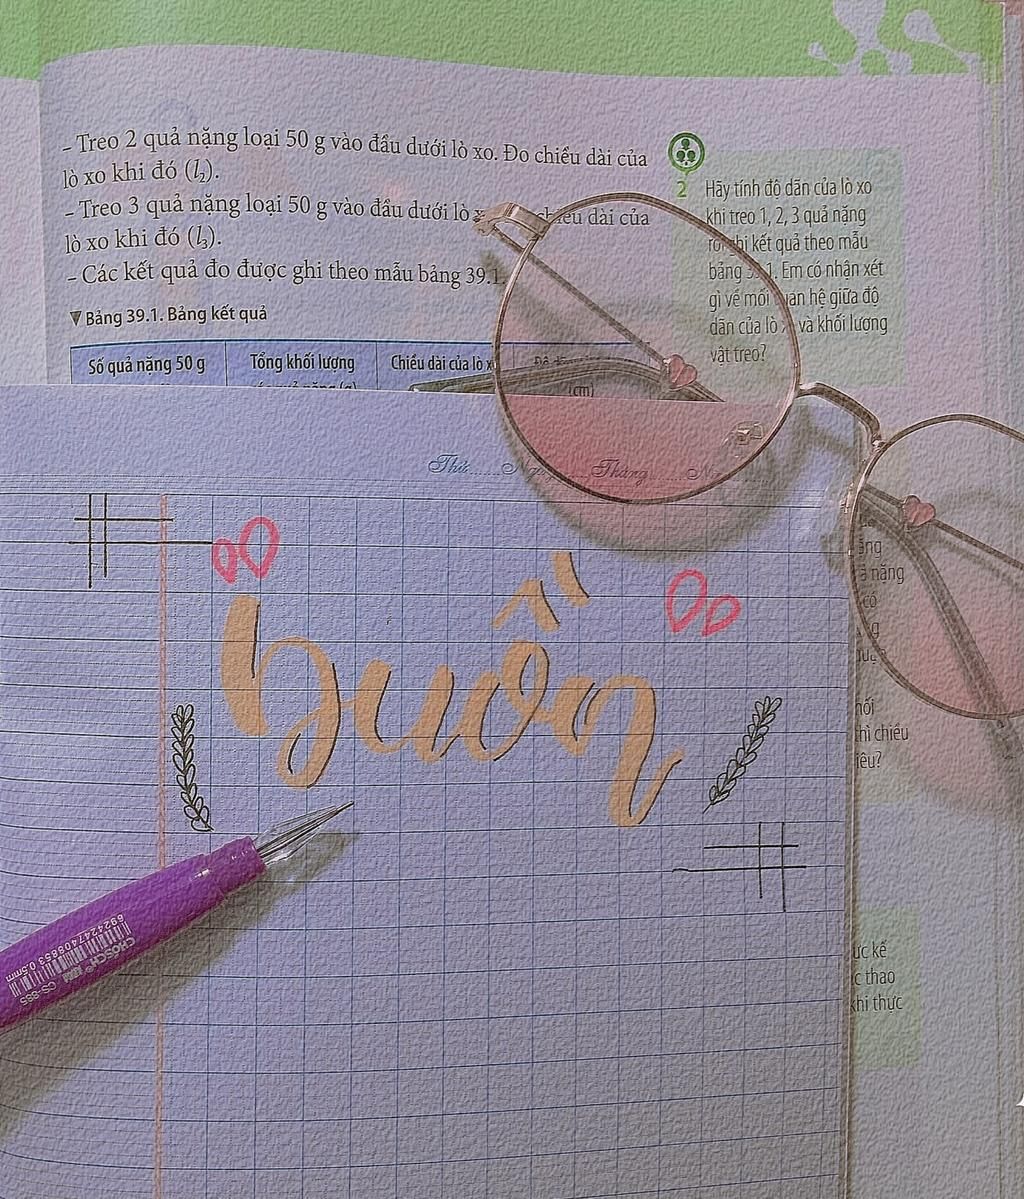 - Treo 2 quả nặng loại 50 g vào đầu dưới lò xo. Đo chiều dài của
lò xo khi đó (l₂).
- Treo 3 quả nặng loại 50 g vào đầu dưới lò chiều dài của
lò xo khi đó (l₃).
- Các kết quả đo được ghi theo mẫu bảng 39.1.
▼ Bảng 39.1. Bảng kết quả
Số quả nặng 50 g
Tổng khối lượng
Chiều dài của lò x
(cm)
2 Hãy tính độ dãn của lò xo
khi treo 1, 2, 3 quả nặng
rồi ghi kết quả theo mẫu
bảng 39.1. Em có nhận xét
gì về mối quan hệ giữa độ
dãn của lò xo và khối lượng
vật treo?
Thứ......Ngày......Tháng......
buồn
ăng
ả năng
có
hối
thì chiều
iêu?
ực kế
c thao
khi thực
CHOSCH
CS-885
6924247408853 0.5mm